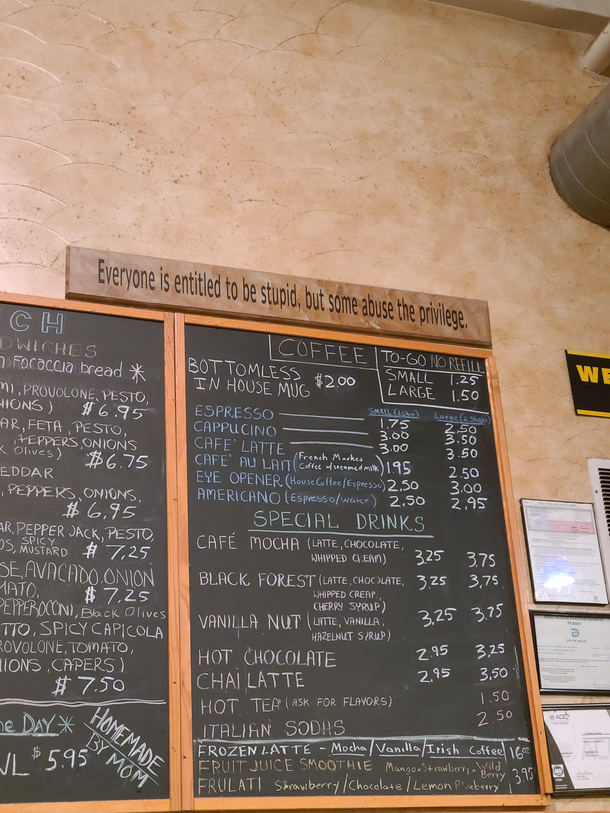 Everyone is entitled to be stupid, but some abuse the privilege.
CH
DWICHES
Foraccia bread *
MI, PROVOLONE, PESTO,
NIONS) $6.95
AR, FETA, PESTO,
PEPPERS, ONIONS
K Olives) $6.75
EDDAR
, PEPPERS, ONIONS,
$6.95
AR, PEPPER JACK, PESTO,
OS, SPICY MUSTARD $7.25
SE, AVACADO, ONION
MATO, $7.25
PEPPEROCCINI, Black Olives
TTO, SPICY CAPICOLA
ROVOLONE, TOMATO,
IONS, CAPERS)
$7.50
he DAY *
WL $5.95
HOMEMADE
BY MOM
COFFEE
TO-GO NO REFILL
BOTTOMLESS
IN HOUSE MUG $2.00
SMALL 1.25
LARGE 1.50
SMALL (1 shot) Large (2 shots)
ESPRESSO 1.75 2.50
CAPPUCINO 3.00 3.50
CAFE' LATTE 3.00 3.50
CAFE' AU LAIT (French Market Coffee w/steamed milk) 1.95 2.50
EYE OPENER (House Coffee/Espresso) 2.50 3.00
AMERICANO (Espresso/water) 2.50 2.95
SPECIAL DRINKS
CAFÉ MOCHA (LATTE, CHOCOLATE, 3.25 3.75
WHIPPED CREAM)
BLACK FOREST (LATTE, CHOCOLATE, 3.25 3.75
WHIPPED CREAM,
CHERRY SYRUP)
VANILLA NUT (LATTE, VANILLA, 3.25 3.75
HAZELNUT SYRUP)
HOT CHOCOLATE 2.95 3.25
CHAI LATTE 2.95 3.50
HOT TEA (ASK FOR FLAVORS) 1.50
ITALIAN SODAS 2.50
FROZEN LATTE - Mocha/Vanilla/Irish Coffee 16oz
FRUIT JUICE SMOOTHIE Mango. Strawberry. Wild Berry 3.95
FRULATI Strawberry/Chocolate/Lemon Blueberry
WE